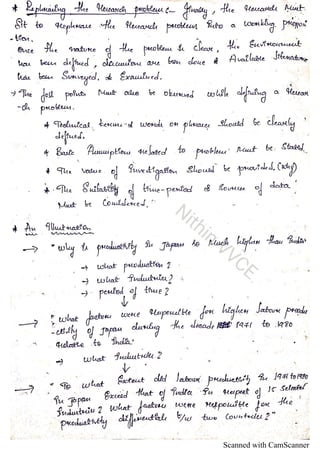 * Rephrasing the Research problem :- Finally, the Researcher Must
Sit to rephrase the Research problem into a working proposi
-tion.
Once the nature of the problem is clear, the Environment
has been defined, discussion are been done & Available
has been Surveyed, & Examined.
→ The foll points Must also be observed while defining a Resear
-ch problem.
* Technical terms & words or phrases should be clearly
defined.
* Basic Assumptions related to problem Must be Stated.
* The value of Investigation Should be provided. (Why)
* The Suitability of time-period & Sources of data
Must be Considered.
Nithin VVCE
* An Illustration.
→ "Why is productivity in Japan so Much higher than India"
→ what production ?
→ what Industries ?
→ period of time ?
↓
" what factors were responsible for higher labour produ
-ctivity of Japan during the decade 1971 to 1980
relative to India."
→ what Industries ?
↓
" To what Extent did labour productivity in 1971 to 1980
in Japan Exceed that of India in respect of 15 Selected
Industries ? What factors were responsible for the
productivity differentials b/w two Countries ?"
Scanned with CamScanner